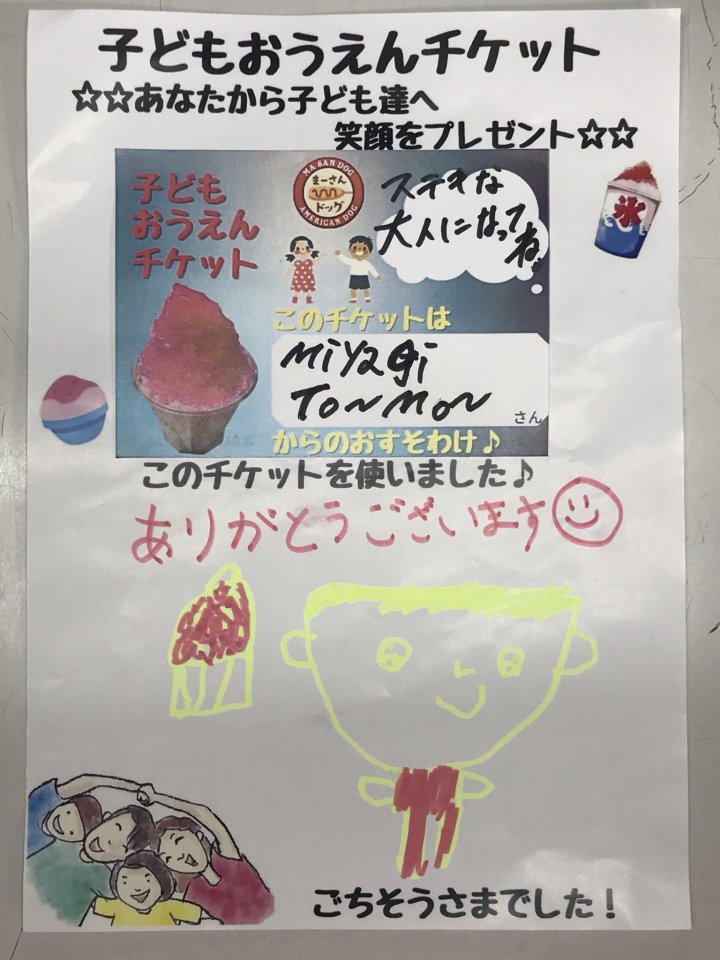 子どもおうえんチケット
☆☆あなたから子ども達へ
笑顔をプレゼント☆☆
子ども
おうえん
チケット
MA SAN DOG
まーさん
ドッグ
AMERICAN DOG
ステキな
大人になって
ね。
氷
このチケットは
MiYAGi
TONMON
さん
からのおすそわけ♪
このチケットを使いました♪
ありがとうございます
ごちそうさまでした!